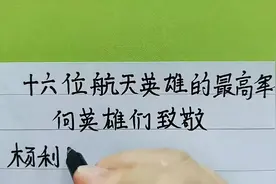 十六位航天英雄的最高年
向英雄们致敬
杨利